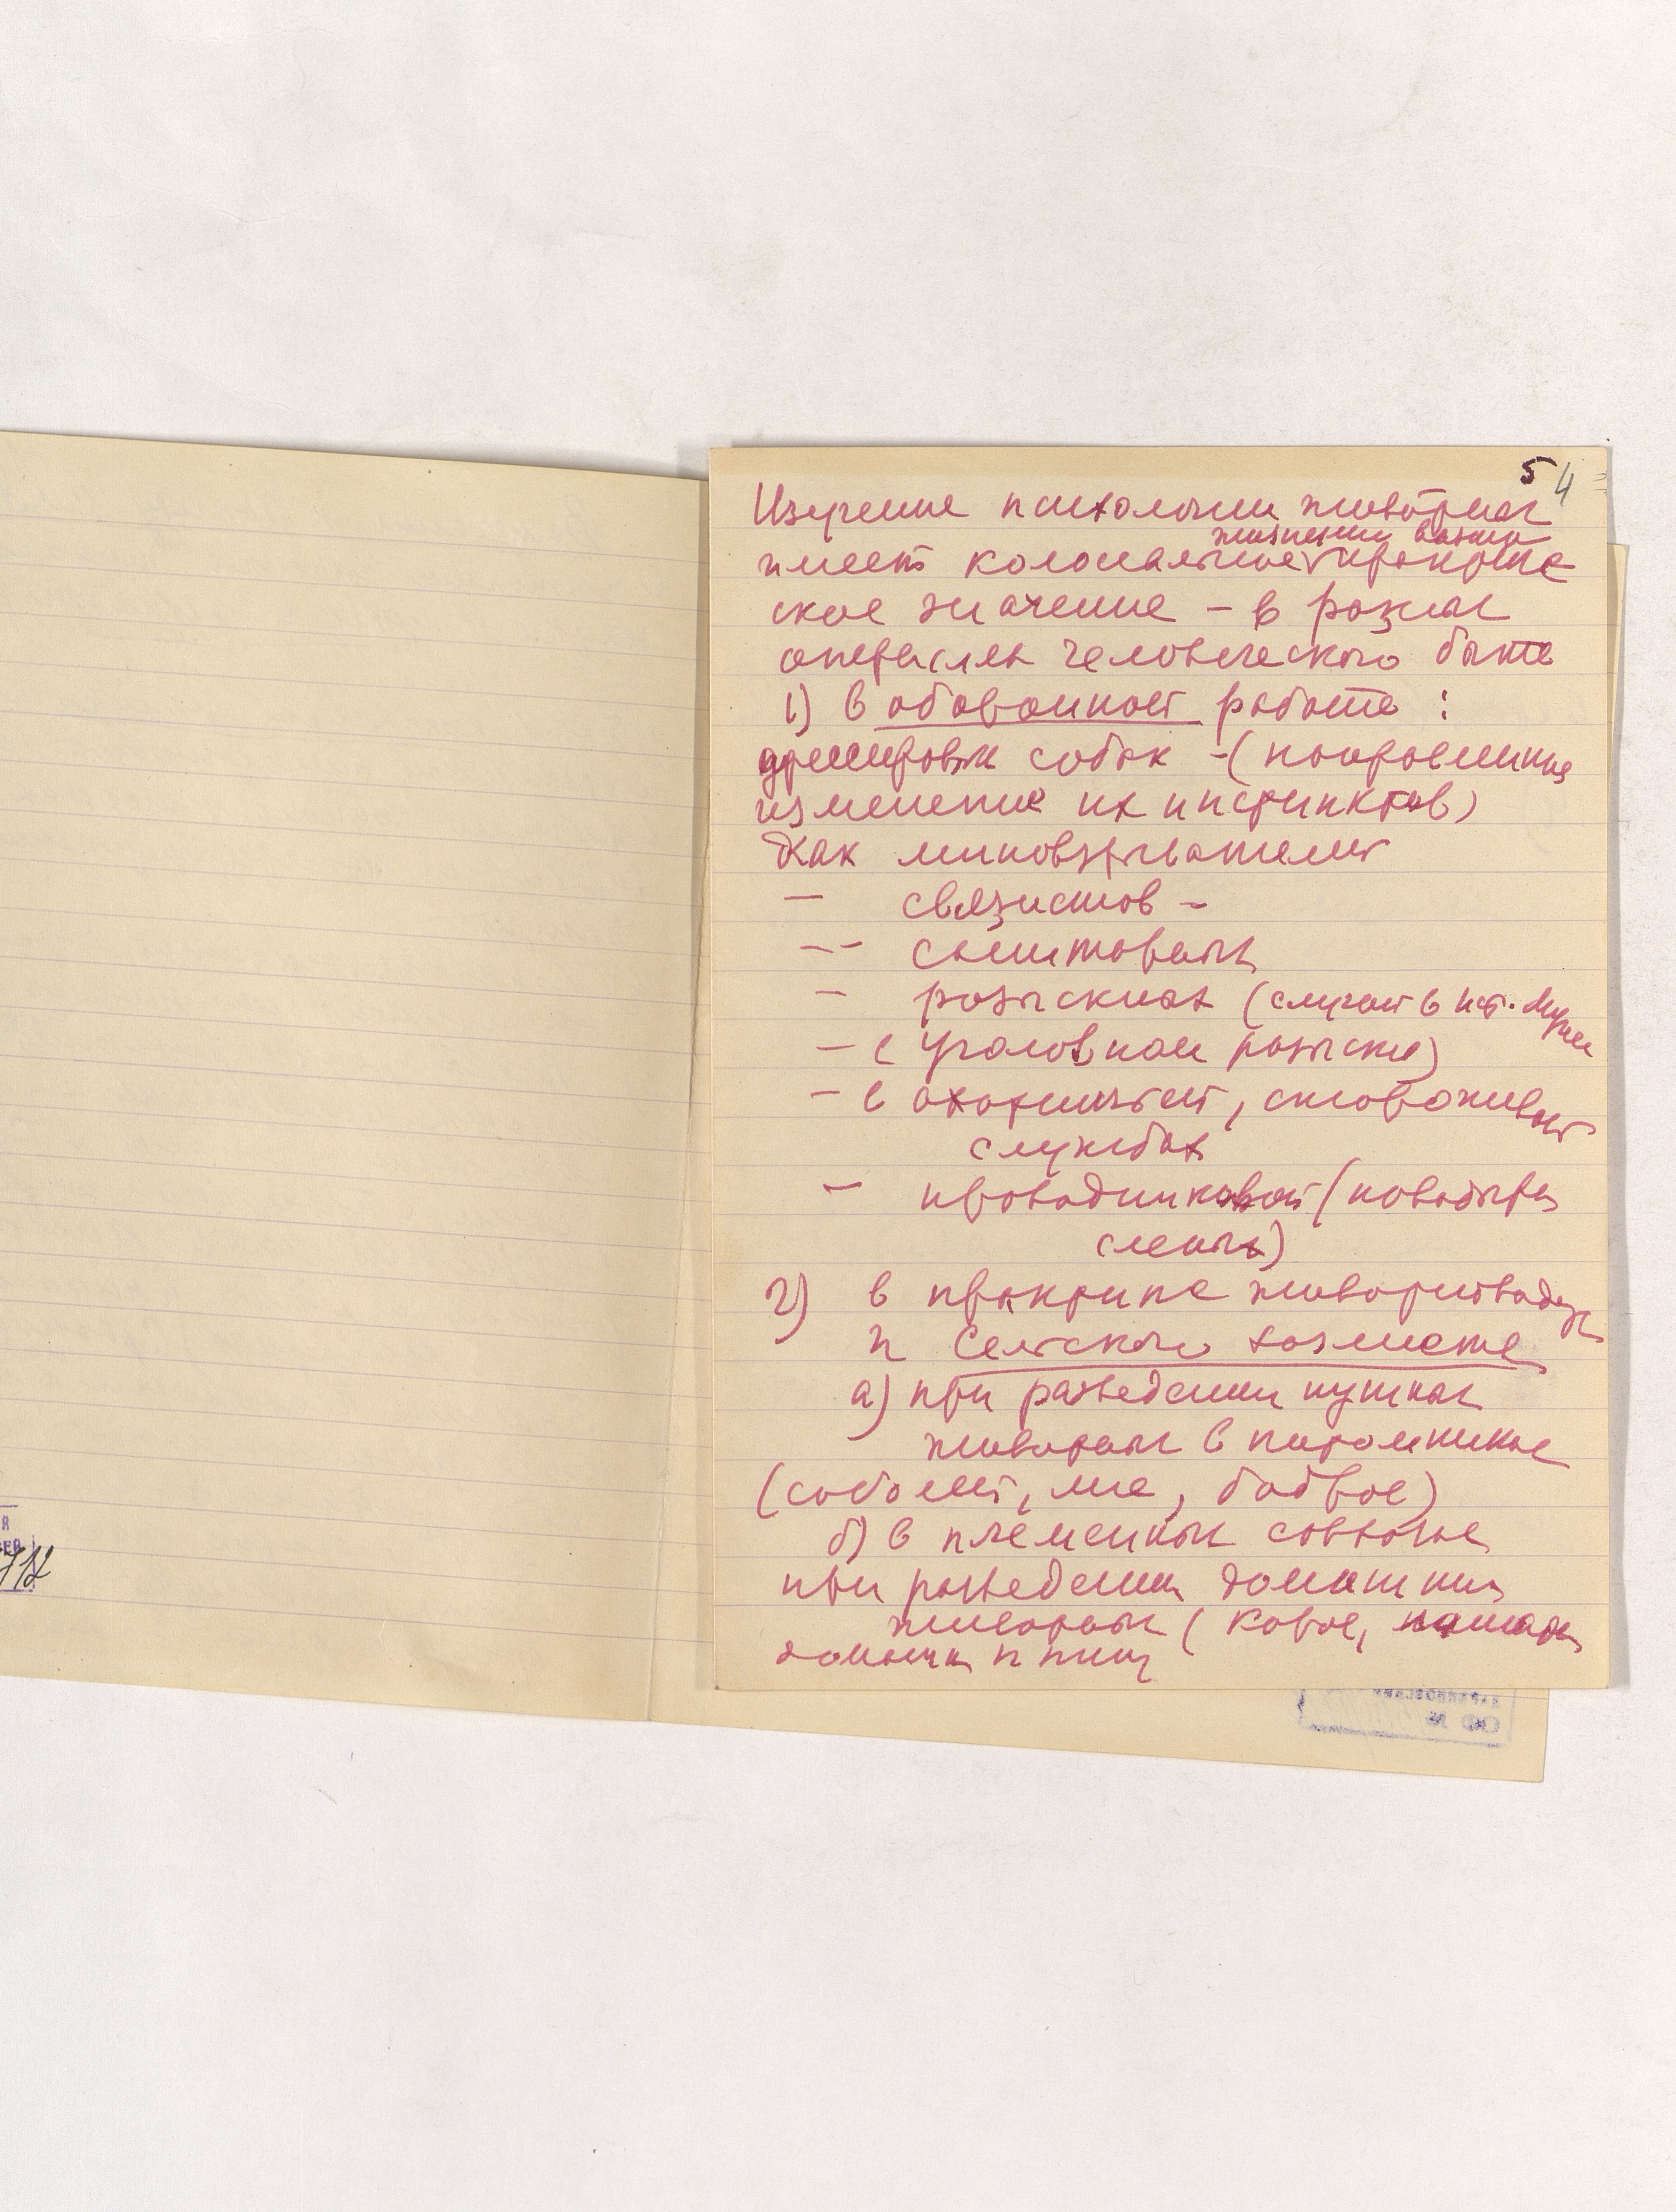 5 4
Изучение психологии животных
жизненно важно
имеет колоссальное практиче
ское значение – в разных
отраслях человеческого быта
1) в оборонной работе :
дрессировки собак – (направленные
изменение их инстинктов)
Как миновзрывателей
– связистов –
-- санитарных
– розыскных (случай в
– (Уголовном розыске)
– в охотничьей, сторожевой
службах
– проводниковой (поводыри
слепых)
2) в практике животноводства
и Сельского хозяйства
а) при разведении пушных
животных в питомниках
(соболей, лис, бобров)
б) в племенных совхозах
при разведении домашних
животных (Коров, лошадей
домашних птиц
712